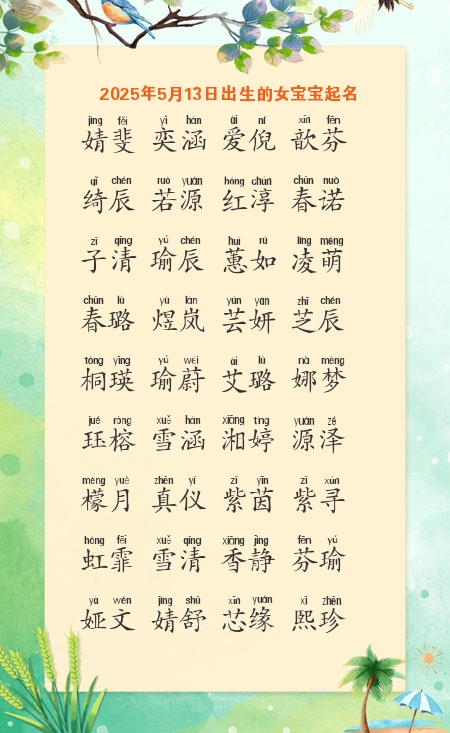 2025年5月13日出生的女宝宝起名
jìng fěi yì hán ài ní xīn fēn
婧斐 奕涵 爱倪 歆芬
qǐ chén ruò yuán hóng chún chūn nuò
绮辰 若源 红淳 春诺
zǐ qīng yú chén huì rú líng méng
子清 瑜辰 蕙如 凌萌
chūn lù yù lán yún yán zhī chén
春璐 煜岚 芸妍 芝辰
tóng yīng yú wèi ài lù nà mèng
桐瑛 瑜蔚 艾璐 娜梦
jué róng xuě hán xiāng tíng yuán zé
珏榕 雪涵 湘婷 源泽
méng yuè zhēn yí zǐ yīn zǐ xún
檬月 真仪 紫茵 紫寻
hóng fēi xuě qīng xiāng jìng fēn yú
虹霏 雪清 香静 芬瑜
yà wén jìng shū xīn yuán xī zhēn
娅文 婧舒 芯缘 熙珍